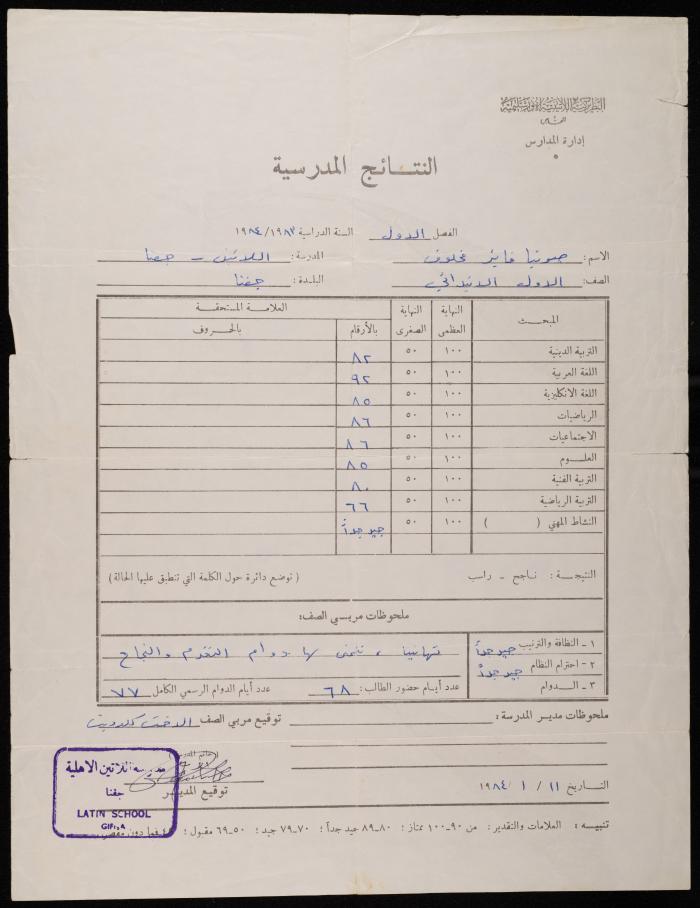 البطريركية اللاتينية الاورشليمية
القدس
إدارة المدارس
النتــائج المدرسية
الفصل الاول السنة الدراسية ١٩٨٣/١٩٨٤
الاسم: صونيا فايز مخلوف المدرسة: اللاتين - جفنا
الصف: الاول الابتدائي البلدة: جفنا
المبحث النهاية العظمى النهاية الصغرى العلامة المستحقة
بالأرقام بالحروف
التربية الدينية ١٠٠ ٥٠ ٨٢
اللغة العربية ١٠٠ ٥٠ ٩٢
اللغة الانكليزية ١٠٠ ٥٠ ٨٥
الرياضيات ١٠٠ ٥٠ ٨٦
الاجتماعيات ١٠٠ ٥٠ ٨٦
العلــوم ١٠٠ ٥٠ ٨٥
التربية الفنية ١٠٠ ٥٠ ٨٠
التربية الرياضية ١٠٠ ٥٠ ٦٦
النشاط المهني ( ) ١٠٠ ٥٠ جيد جداً
النتيجــة: ناجح - راسب (توضع دائرة حول الكلمة التي تنطبق عليها الحالة)
ملحوظات مربي الصف:
١ - النظافة والترتيب جيد جداً تهانينا ، نتمنى لها دوام التقدم والنجاح
٢ - احترام النظام جيد جداً
٣ - الــدوام عدد أيام حضور الطالب: ٦٨ عدد أيام الدوام الرسمي الكامل ٧٧
ملحوظات مدير المدرسة: توقيع مربي الصف الاخت
(خاتم المدرسة)
التاريخ ١١ / ١ / ١٩٨٤ توقيع المدير
مدرسة اللاتين الاهلية
جفنا
LATIN SCHOOL
GIFNA
تنبيــه: العلامات والتقدير: من ٩٠-١٠٠ ممتاز؛ ٨٠-٨٩ جيد جداً؛ ٧٠-٧٩ جيد؛ ٥٠-٦٩ مقبول؛ فما دون مقصر.